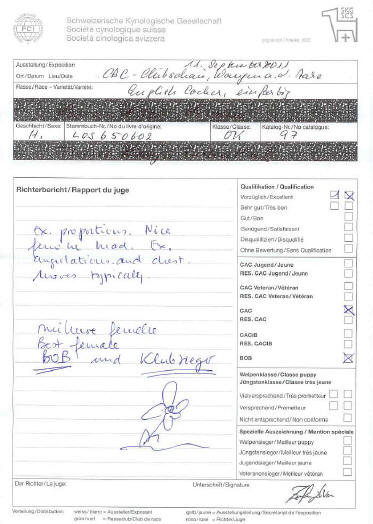 FCI
Schweizerische Kynologische Gesellschaft
Société cynologique suisse
Società cinologica svizzera
SKG
SCS
Ausstellung/Exposition 11. September 2011
Ort/Datum Lieu/Date CAC - Clubschau, Wangen a.d. Aare
Rasse/Race - Varietät/Variété: English Cocker, einfarbig
Geschlecht/Sexe: Stammbuch-Nr./No du livre d'origine: Klasse/Classe: Katalog-Nr./No catalogue:
H. LOS650602 OK 97
Richterbericht/Rapport du juge
ex. proportions. Nice
feminine head. Ex.
angulations and chest.
Moves typically
meilleure femelle
Best female
BOB und Klubsieger
Qualifikation/Qualification
Vorzüglich/Excellent
Sehr gut/Très bon
Gut/Bon
Genügend/Satisfaisant
Disqualifiziert/Disqualifié
Ohne Bewertung/Sans Qualification
CAC Jugend/Jeune
RES. CAC Jugend/Jeune
CAC Veteran/Vétéran
RES. CAC Veteran/Vétéran
CAC
RES. CAC
CACIB
RES. CACIB
BOB
Welpenklasse/Classe puppy
Jüngstenklasse/Classe très jeune
Vielversprechend/Très prometteur
Versprechend/Prometteur
Nicht entsprechend/Non conforme
Spezielle Auszeichnung/Mention spéciale
Welpensieger/Meilleur puppy
Jüngstensieger/Meilleur très jeune
Jugendsieger/Meilleur jeune
Veteranensieger/Meilleur vétéran
Der Richter/Le juge:
Unterschrift/Signature
Verteilung/Distribution: weiss/blanc = Aussteller/Exposant
grün/vert = Rasseclub/Club de race
gelb/jaune = Ausstellungsleitung/Secrétariat de l'exposition
rosa/rose = Richter/Juge